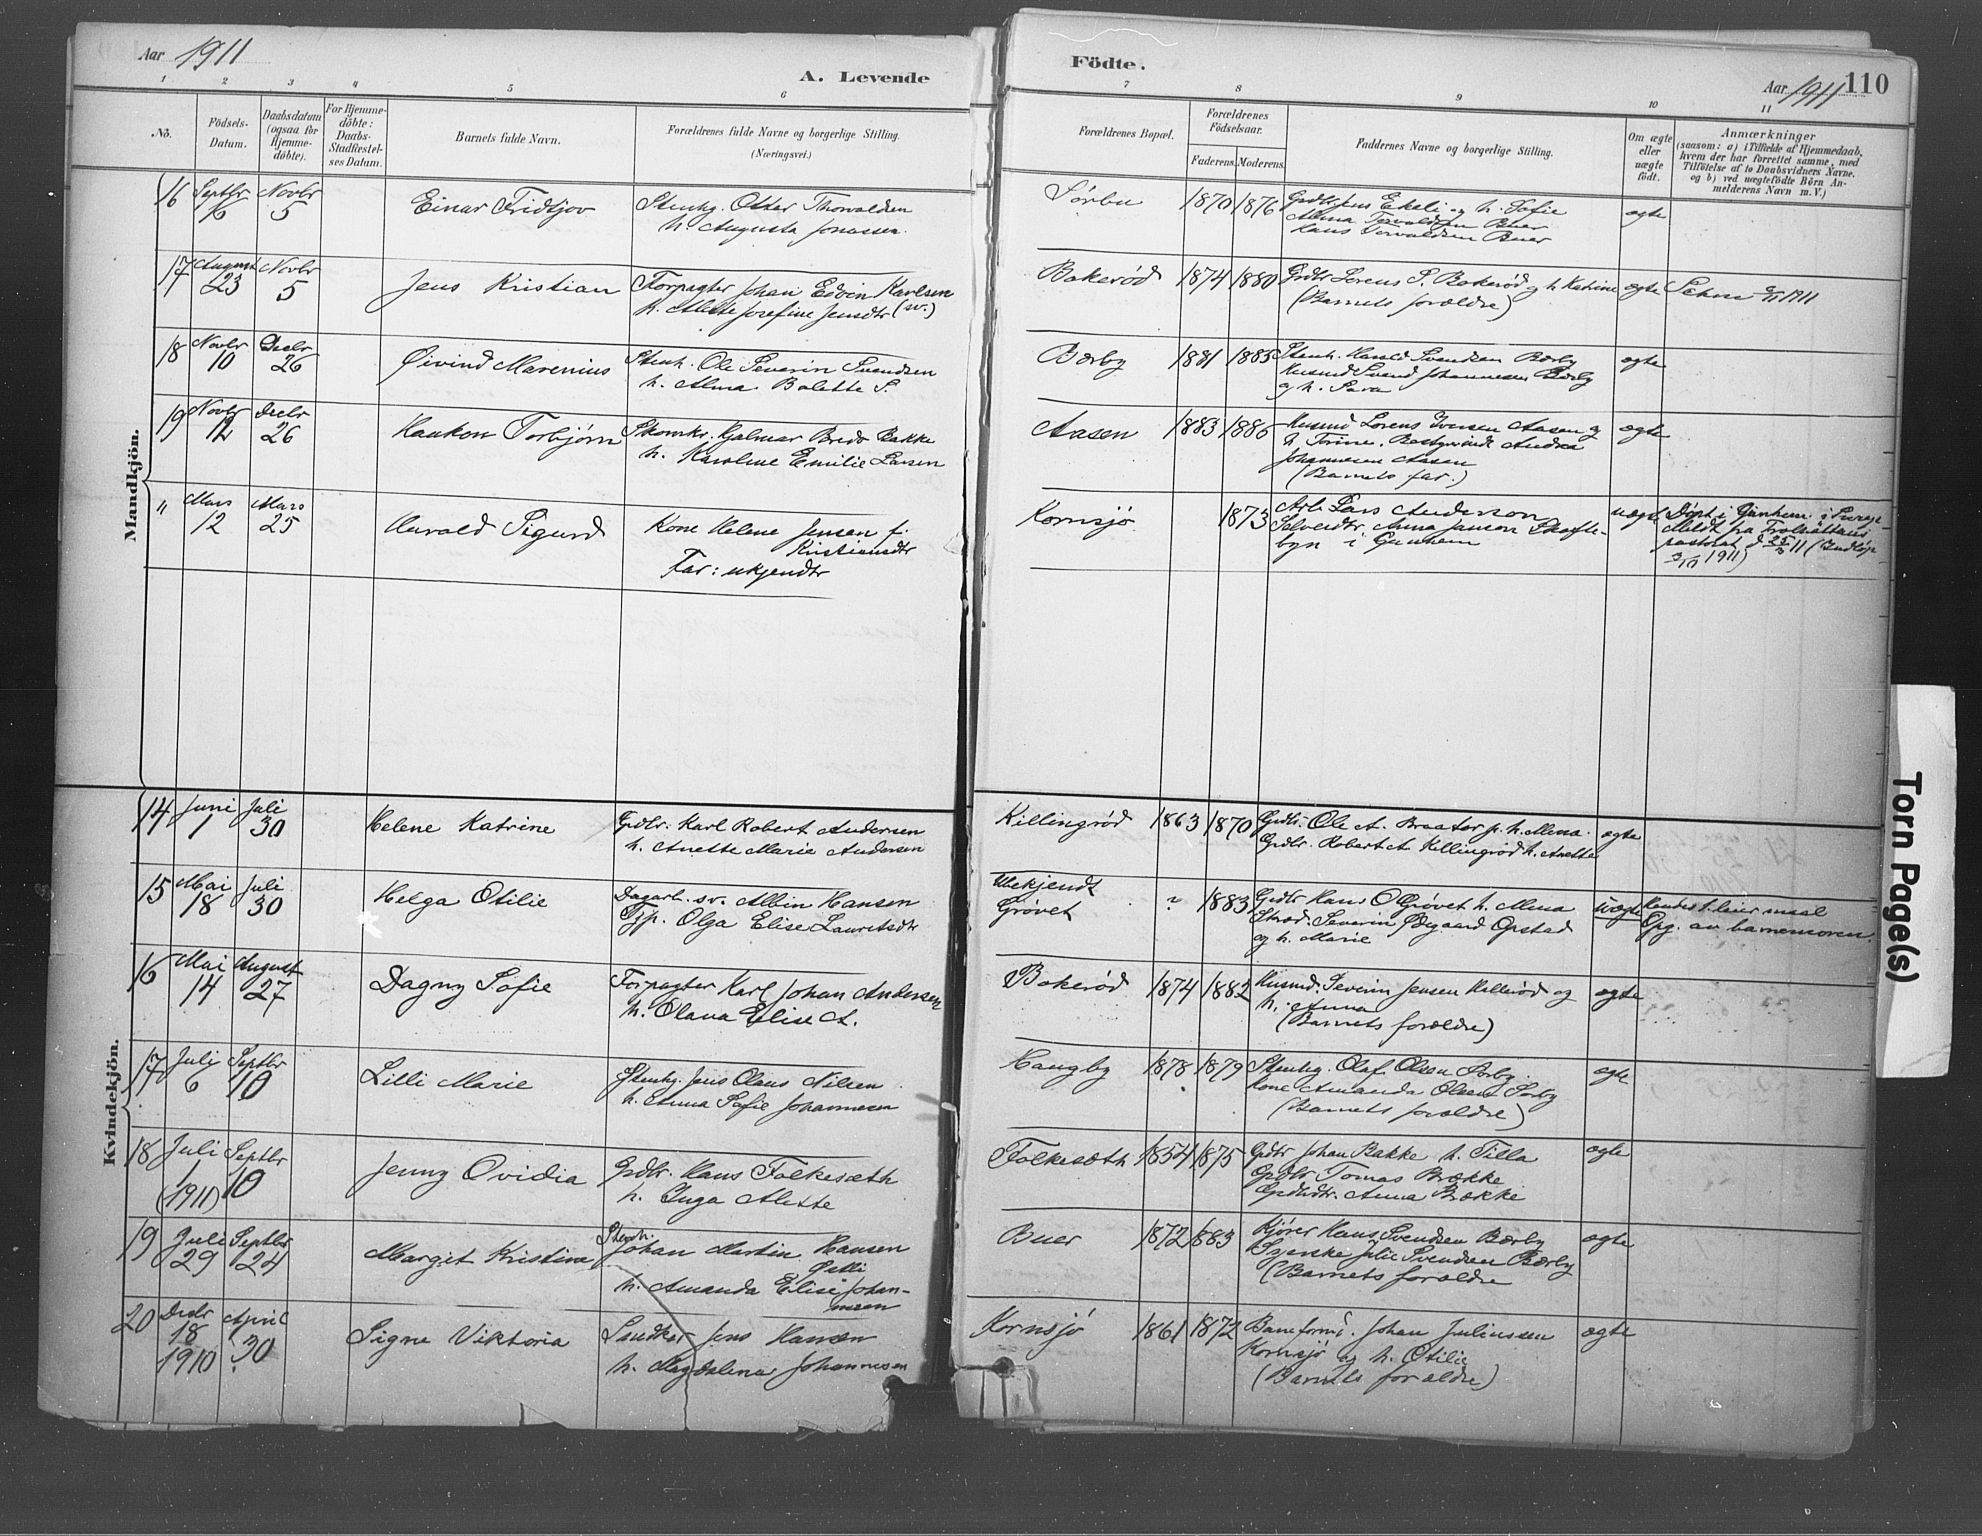 Aar 1911
A. Levende
Födte.
Aar 1911 110
1 2 3 4 5 6 7 8 9 10 11
No.
Födsels-Datum.
Daabsdatum (ogsaa for Hjemme-döbte).
For Hjemme-döbte: Daabs-Stadfæstel-ses Datum.
Barnets fulde Navn.
Forældrenes fulde Navne og borgerlige Stilling. (Næringsvei.)
Forældrenes Bopæl.
Forældrenes Födselsaar.
Faderens. Moderens.
Faddernes Navne og borgerlige Stilling.
Om ægte eller uægte födt.
Anmærkninger
(saasom: a) i Tilfælde af Hjemmedaab, hvem der har forrettet samme, med Tilföielse af to Daabsvidners Navne, og b) ved uægtefödte Börn An-melderens Navn m. V.)
Mandkjön.
16 Septbr 6 Novbr 5 Einar Fridtjov
Stenhg. Otter Thorvaldsen
h. Augusta Jonassen
Sørbu 1870 1876
Grdbr Jens Ekeli og h. Sofie
Alma Torvaldsen Buer
Hans Torvaldsen Buer
ægte
17 August 23 Novbr 5 Jens Kristian
Forpagter Johan Edvin Karlsen (sv.)
h. Alette Josefine Jensdtr
Bokerød 1874 1880
Grdbr Sorens S. Bokerød og h. Katrine
(Barnets forældre)
ægte
18 Novbr 10 Decbr 26 Øivind Marenius
Stenh. Ole Severin Svendsen
h. Alma Bolette S.
Bærby 1881 1885
Stenh. Harald Svendsen Bærby
Husmd Svend Johannesen Bærby
og h. Sara
ægte
19 Novbr 12 Decbr 26 Haakon Torbjørn
Skomkr. Hjalmar Bredo Bakke
h. Karoline Emilie Larsen
Aasen 1883 1886
Husmd Lorens Iversen Aasen og
h. Trine. Andrea
Johannesen Aasen
(Barnets far.)
ægte
" Mars 12 Mars 25 Harald Sigurd
Kone Helene Jensen f.
Kristiansdtr
Far: ukjendtr
Kornsjø 1873
Arb. Lars Anderson
Anna Janson
byn i Gunhem
uægte
Døpt i Gunhem i Sverge
Meldt fra Trolhättans
pastorat d 25/3 11 (Indløp
3/10 1911)
Kvindekjön.
14 Juni 1 Juli 30 Helene Katrine
Grdbr. Karl Robert Andersen
h. Anette Marie Andersen
Killingrød 1863 1870
Grdbr. Ole A. Braaten h. Mina
Grdbr. Robert A Killingrød h. Anette
ægte
15 Mai 18 Juli 30 Helga Otilie
Dagarb. sv. Albin Hansen
Tjp. Olga Elise Lauritsdtr
Ubekjendt
Grøvet ? 1883
Grdbr Hans O Grøvet h. Alma
Severin Ødegaard Opstad
og h. Marie
uægte
Hendes 1. leiermaal
Opg. av barnemoren
16 Mai 14 August 27 Dagny Sofie
Forpagter Karl Johan Andersen
h. Olava Elise A.
Bokerød 1874 1882
Husmd. Severin Jensen Hellerød og
h. Anna
(Barnets forældre)
ægte
17 Juli 6 Septbr 10 Lilli Marie
Stenhg. Jens Olaus Nilsen
h. Anna Sofie Johannesen
Haugby 1878 1879
Stenhg. Olaf Olsen Sørby
kone Amanda Olsen Sørby
(Barnets forældre)
ægte
18 Juli 1 (1911) Septbr 10 Jenny Ovidia
Grdbr. Hans Folkesæth
h. Inga Alette
Folkesæth 1854 1875
Grdbr Johan Bakke h. Tilla
Grdbr Tomas Brække
Grdbrdtr. Anna Brække
ægte
19 Juli 29 Septbr 24 Marget Kristine
Stenh. Johan Martin Hansen
h. Amanda Elise Johan-
nesen
Buer 1872 1883
Kjører Hans Svendsen Bærby
Julie Svendsen Bærby
(Barnets forældre
ægte
20 Decbr 18 1910 April 30 Signe Viktoria
Jens Hansen
h. Magdalena Johannesen
Kornsjø 1861 1872
Baneformd. Johan Juliussen
Kornsjø og h. Otilie
(Barnets forældre)
ægte
Torn Page(s)